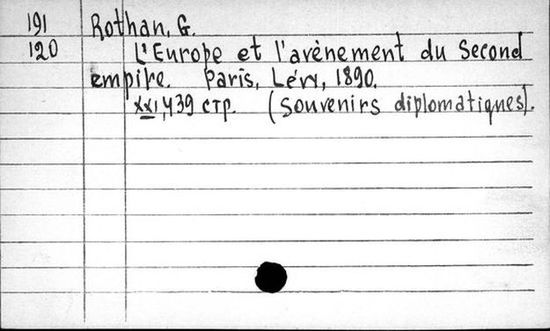 191 Rothan, G.
120 L'Europe et l'avènement du Second
empire. Paris, Lévy, 1890.
xxı, 439 стр. (Souvenirs diplomatiques).